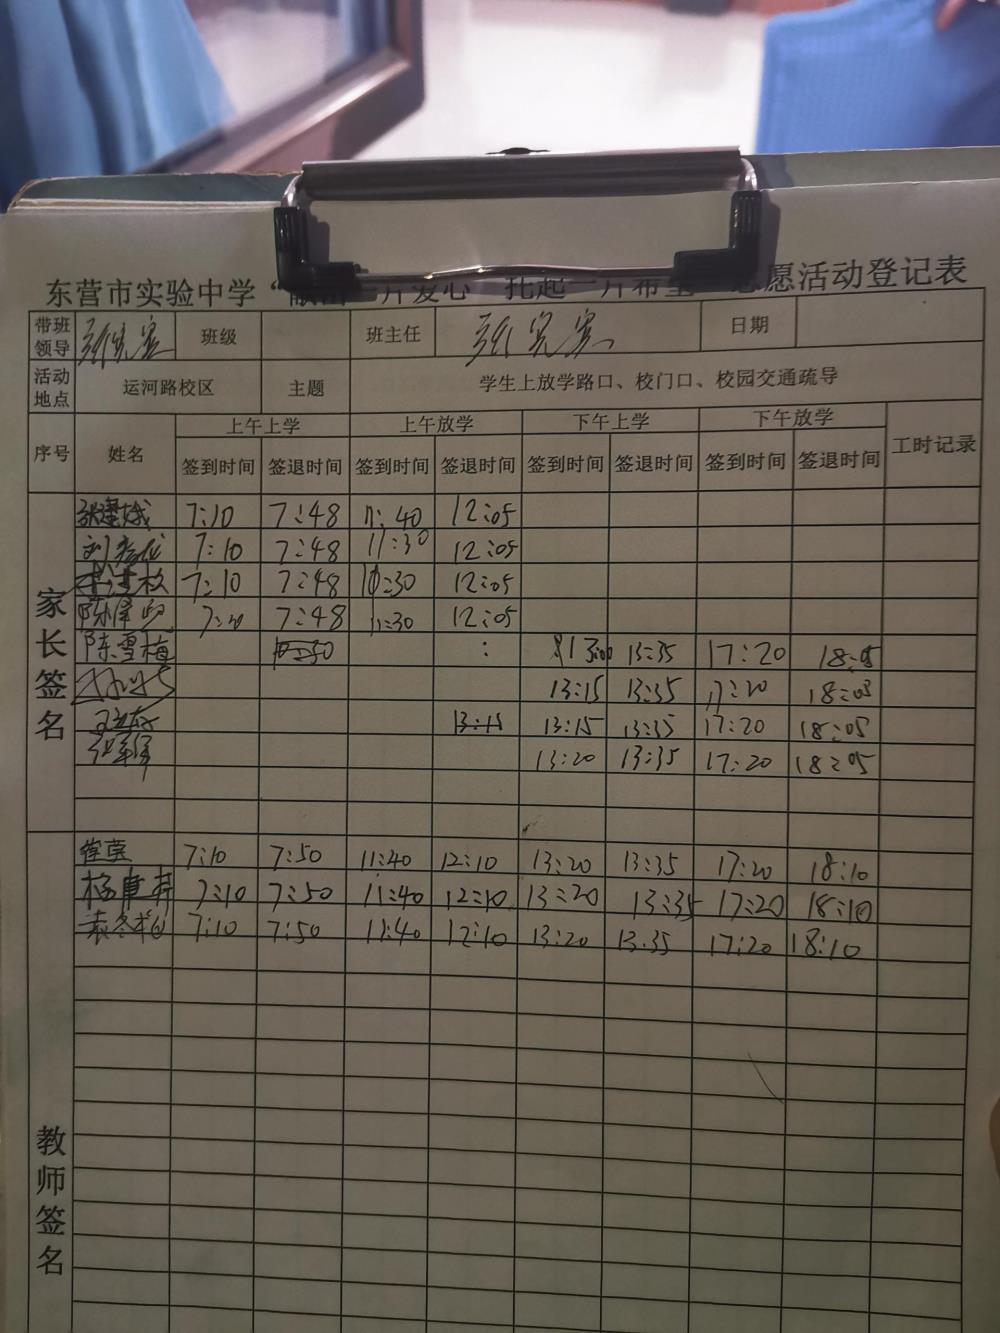 东营市实验中学“献出一片爱心 托起一片希望”志愿活动登记表
带班领导 班级 班主任 日期
活动地点 运河路校区 主题 学生上放学路口、校门口、校园交通疏导
序号 姓名 上午上学 上午放学 下午上学 下午放学 工时记录
签到时间 签退时间 签到时间 签退时间 签到时间 签退时间 签到时间 签退时间
家长签名
张建城 7:10 7:48 11:40 12:05
7:10 7:48 11:30 12:05
7:10 7:48 12:05
7:48 11:30 12:05
陈雪梅 13:35 17:20 18:05
13:15 13:35 17:20 18:03
13:15 13:15 13:35 17:20 18:05
13:20 13:35 17:20 18:05
教师签名
7:10 7:50 11:40 12:10 13:20 13:35 17:20 18:10
7:10 7:50 11:40 12:10 13:20 13:35 17:20 18:10
袁冬梅 7:10 7:50 11:40 12:10 13:20 13:35 17:20 18:10